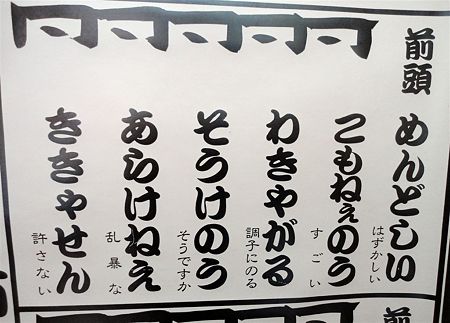 前頭
めんどしい
はずかしい
こもねぇのう
すごい
わきゃがる
調子にのる
そうけのう
そうですか
あらけねえ
乱暴な
ききゃせん
許さない
前